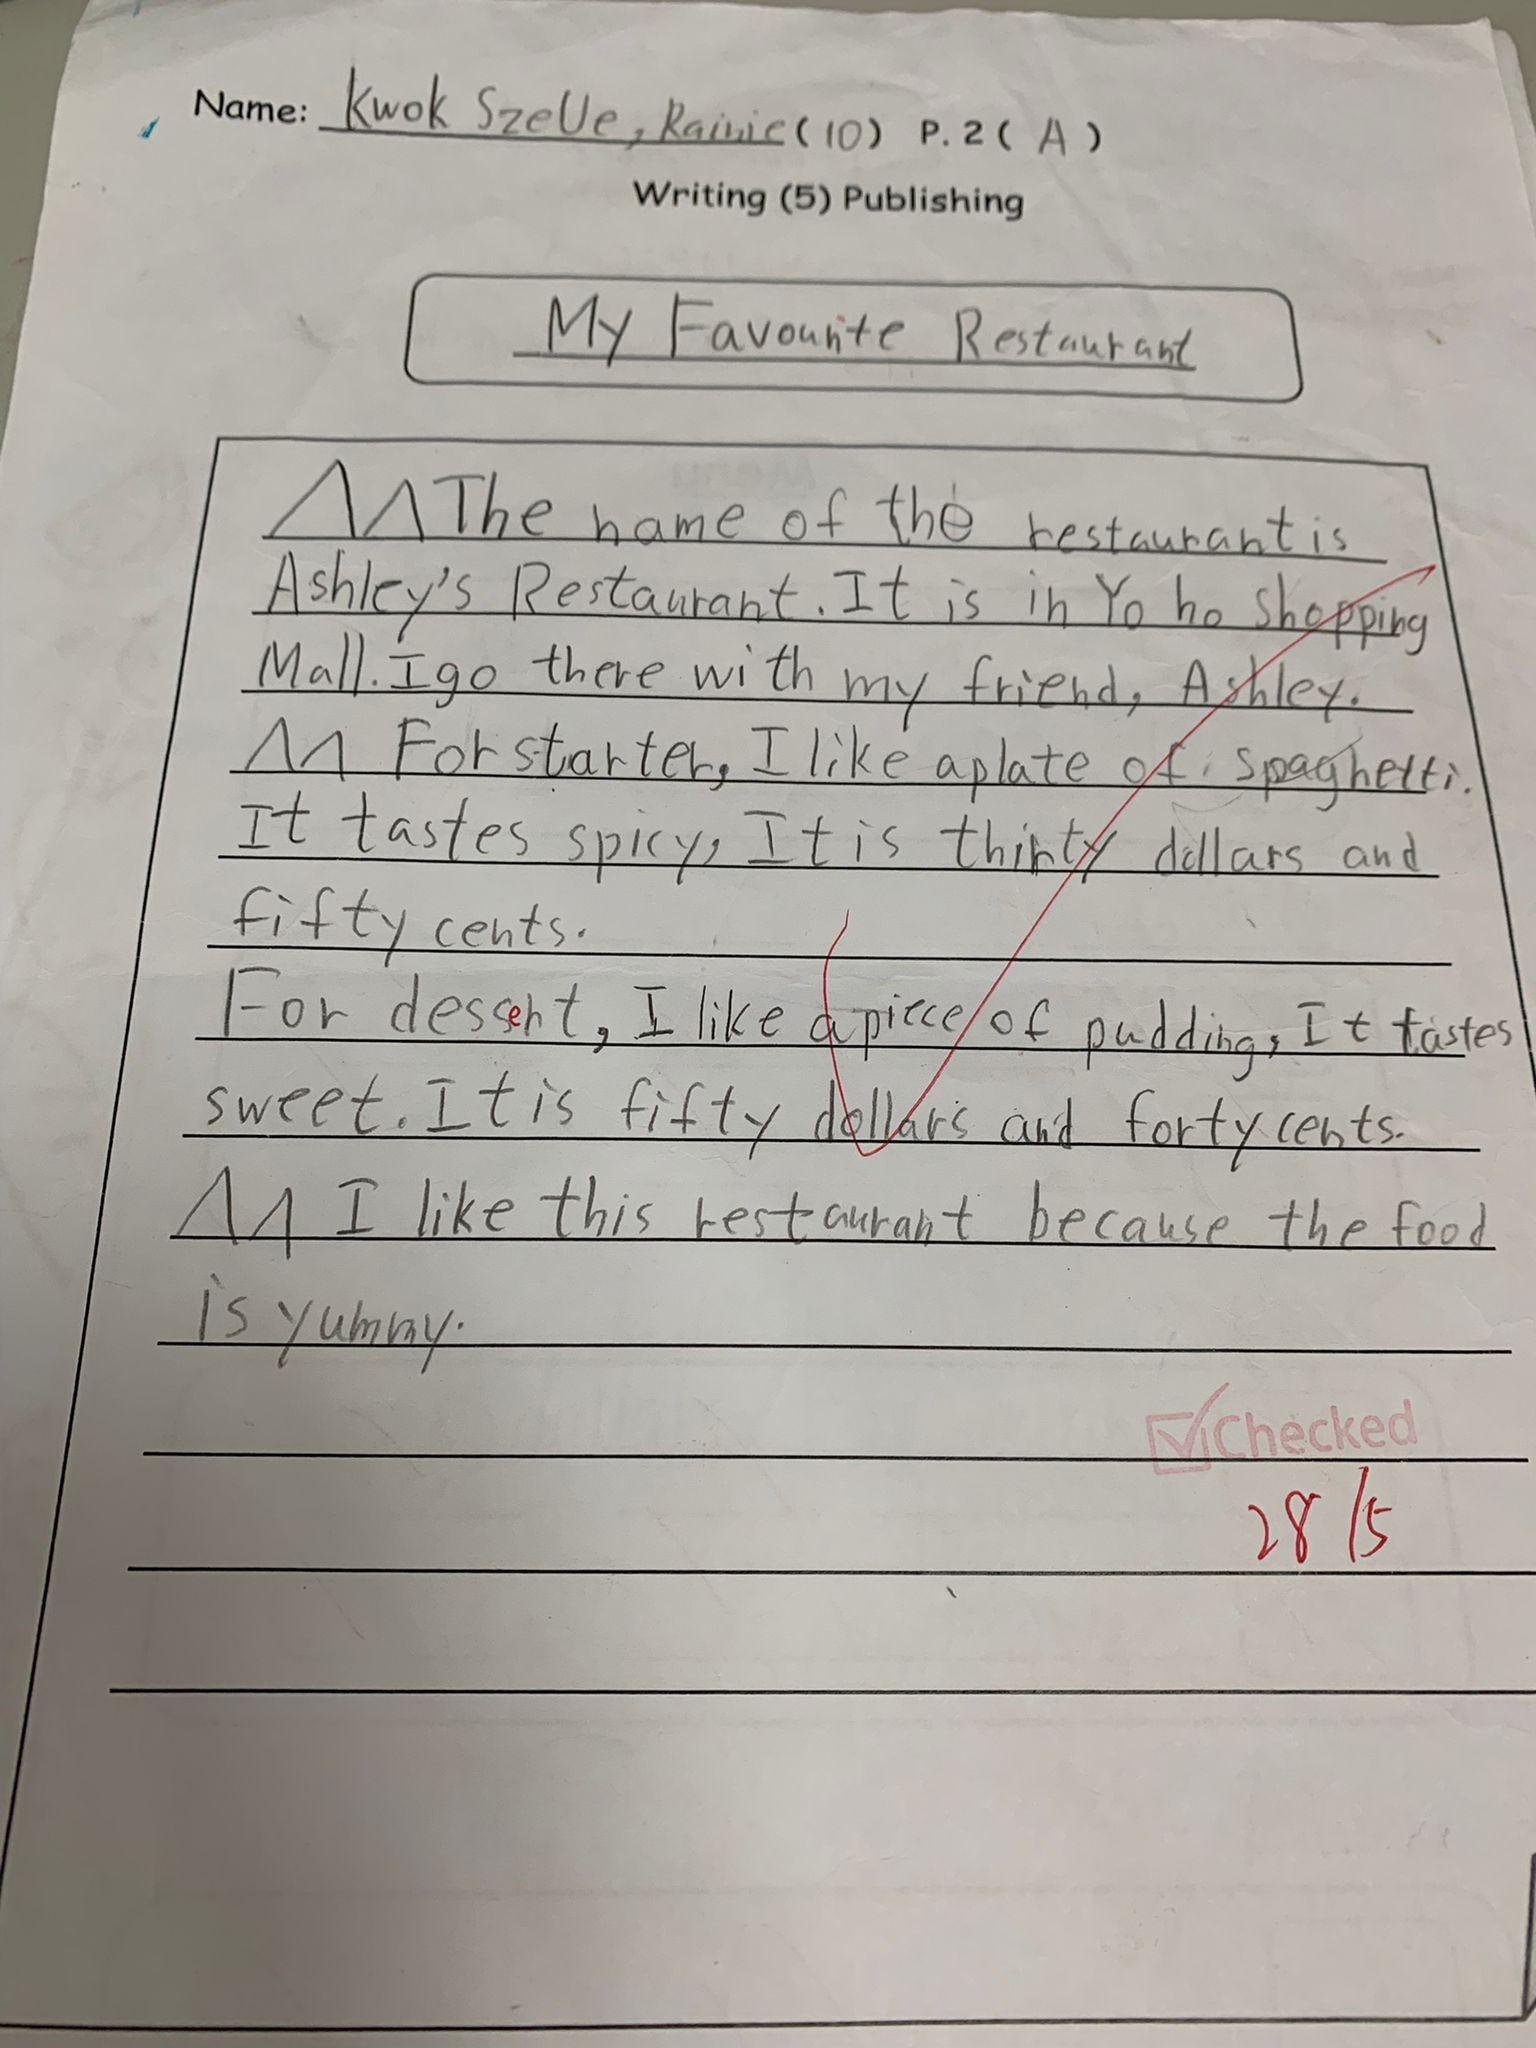 Name: Kwok Sze Ue, Rainie (10) P. 2 ( A )
Writing (5) Publishing
My Favourite Restaurant
The name of the restaurant is
Ashley's Restaurant. It is in Yo ho Shopping
Mall. I go there with my friend, Ashley.
For starter, I like a plate of spaghetti.
It tastes spicy, It is thirty dollars and
fifty cents.
For dessert, I like a piece of pudding, It tastes
sweet. It is fifty dollars and forty cents.
I like this restaurant because the food
is yummy.
Checked
28/5